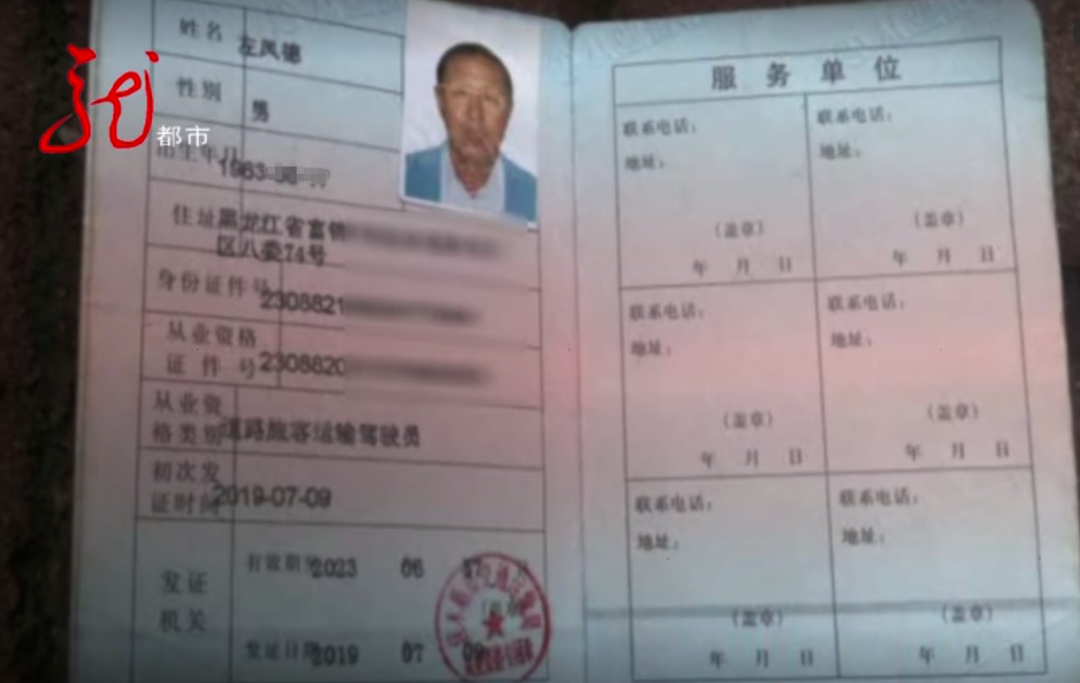 都市
姓名 左凤德
性别 男
出生年月 1963-
住址 黑龙江省富锦
区八委74号
身份证件号 2308821
从业资格
证件号 2308820
从业资
格类别 道路旅客运输驾驶员
初次发
证时间 2019-07-09
发证
机关
有效期至 2023 06
发证日期 2019 07 09
服务单位
联系电话: 联系电话:
地址: 地址:
(盖章) (盖章)
年 月 日 年 月 日
联系电话: 联系电话:
地址: 地址:
(盖章) (盖章)
年 月 日 年 月 日
联系电话: 联系电话:
地址: 地址:
(盖章) (盖章)
年 月 日 年 月 日